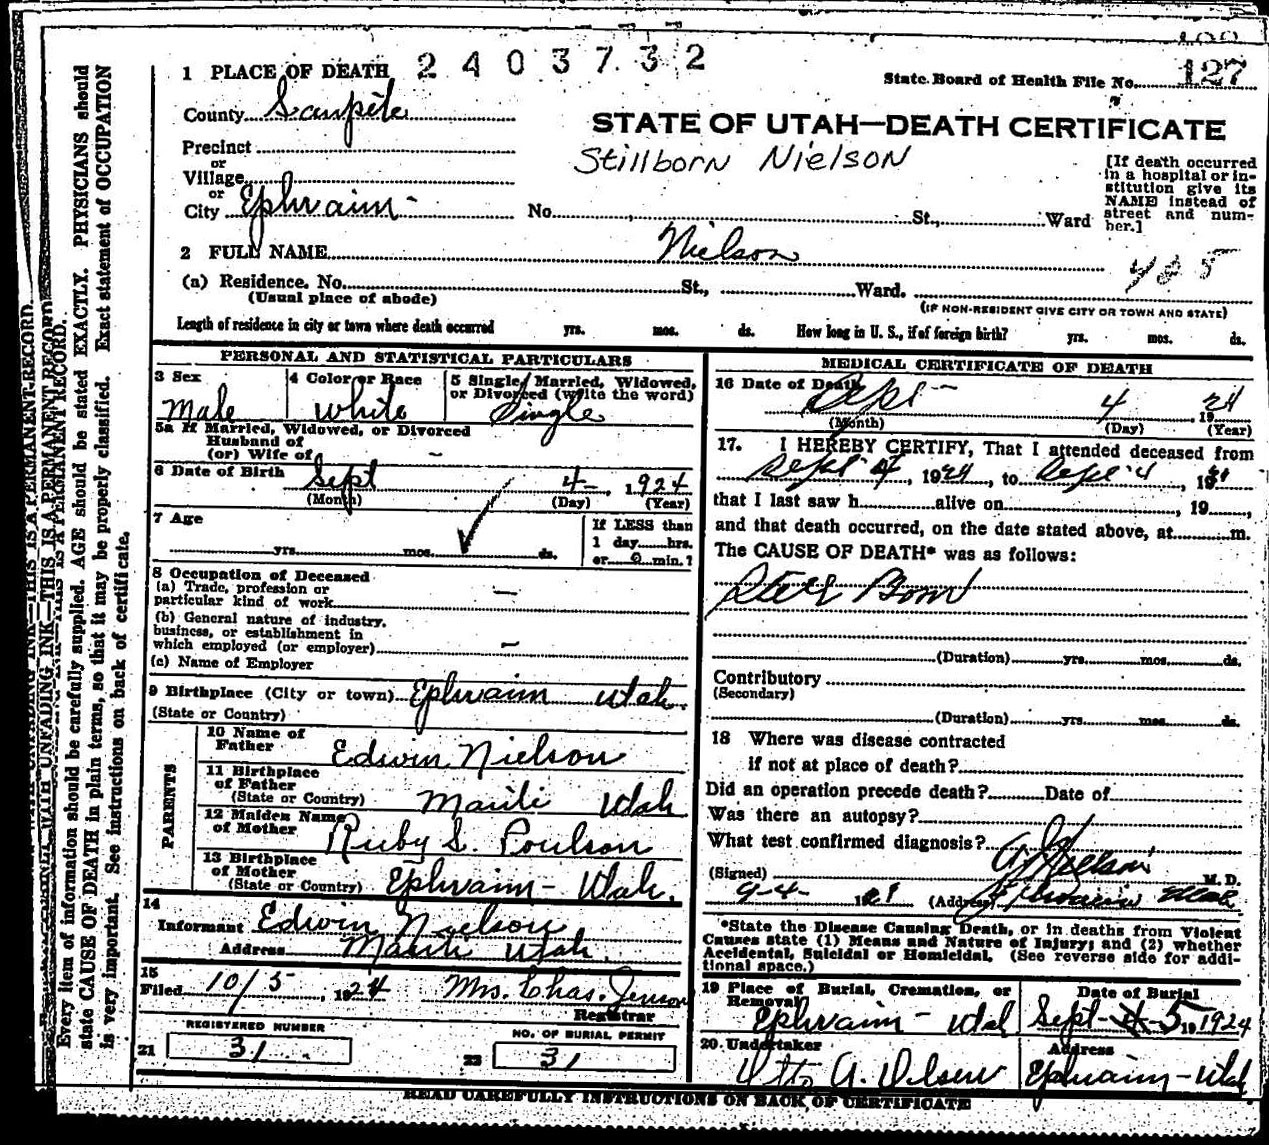 127
2403732
1 PLACE OF DEATH
State Board of Health File No. 127
County Sanpete
STATE OF UTAH—DEATH CERTIFICATE
Precinct
Stillborn Nielson
or
Village
or
City Ephraim
No. St., Ward
[If death occurred in a hospital or in-
stitution give its
NAME instead of
street and num-
ber.]
2 FULL NAME Nielson
405
(a) Residence. No. St., Ward.
(Usual place of abode)
(IF NON-RESIDENT GIVE CITY OR TOWN AND STATE)
Length of residence in city or town where death occurred yrs. mos. ds. How long in U. S., if of foreign birth? yrs. mos. ds.
PERSONAL AND STATISTICAL PARTICULARS
3 Sex
Male
4 Color or Race
White
5 Single, Married, Widowed,
or Divorced (write the word)
Single
5a If Married, Widowed, or Divorced
Husband of
(or) Wife of –
6 Date of Birth Sept 4- 1924
(Month) (Day) (Year)
7 Age
yrs. mos. ds.
If LESS than
1 day hrs.
or 0 min.?
8 Occupation of Deceased
(a) Trade, profession or
particular kind of work —
(b) General nature of industry,
business, or establishment in
which employed (or employer) —
(c) Name of Employer
9 Birthplace (City or town) Ephraim Utah.
(State or Country)
PARENTS
10 Name of
Father Edwin Nielson
11 Birthplace
of Father
(State or Country) Manti Utah
12 Maiden Name
of Mother Ruby S. Poulson
13 Birthplace
of Mother
(State or Country) Ephraim- Utah.
14
Informant Edwin Nielson
Address Manti Utah.
15
Filed 10/5, 1924 Mrs. Chas. Jenson
Registrar
REGISTERED NUMBER
21 31
NO. OF BURIAL PERMIT
22 31
MEDICAL CERTIFICATE OF DEATH
16 Date of Death
Sept- 4 1924
(Month) (Day) (Year)
17. I HEREBY CERTIFY, That I attended deceased from
Sept 4, 1924, to Sept 4, 1924
that I last saw h alive on , 19 ,
and that death occurred, on the date stated above, at m.
The CAUSE OF DEATH* was as follows:
Still Born
(Duration) yrs. mos. ds.
Contributory
(Secondary)
(Duration) yrs. mos. ds.
18 Where was disease contracted
if not at place of death?
Did an operation precede death? Date of
Was there an autopsy?
What test confirmed diagnosis?
(Signed) M. D.
9-4- 1924 (Address) Ephraim Utah
*State the Disease Causing Death, or in deaths from Violent
Causes state (1) Means and Nature of Injury; and (2) whether
Accidental, Suicidal or Homicidal. (See reverse side for addi-
tional space.)
19 Place of Burial, Cremation, or
Removal
Ephraim- Utah
Date of Burial
Sept- 4 5 19 1924
20. Undertaker
Otto A. Olsen
Address
Ephraim-Utah
READ CAREFULLY INSTRUCTIONS ON BACK OF CERTIFICATE
THIS IS A PERMANENT RECORD.
Every item of information should be carefully supplied. AGE should be stated EXACTLY. PHYSICIANS should
state CAUSE OF DEATH in plain terms, so that it may be properly classified. Exact statement of OCCUPATION
is very important. See instructions on back of certificate.